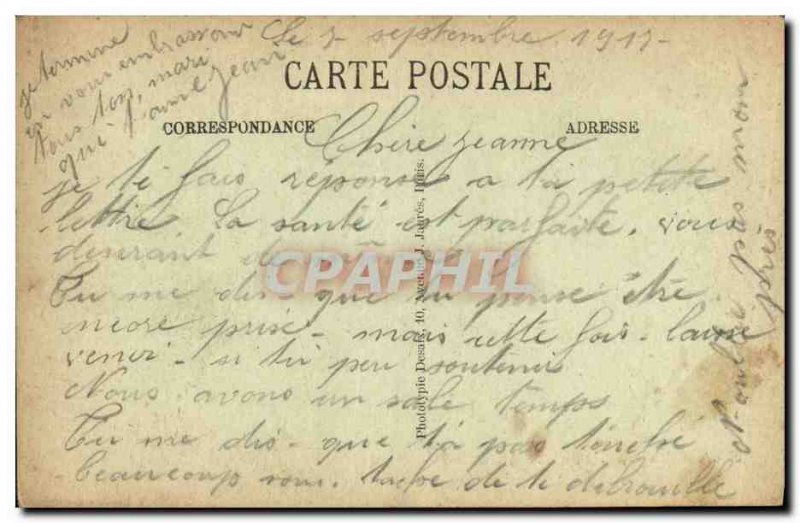 Le 7 septembre 1917-
CARTE POSTALE
CORRESPONDANCE
ADRESSE
Chere jeanne
je te fais réponse a ta petite
lettre. La santé est parfaite. vous
desirant de même
Tu me dis que tu pense être
encore prise - mais cette fois - laisse
venir - si tu peu soutenir
Nous avons un sale temps
Tu me dis - que t'a pas touché
beaucoup vous. tache de te débrouille
N'oublie pas mon
je termine
en vous embrassant
tous ton mari
qui t'aime jean
Phototypie Desaix, 40, Avenue J. Jaurès, Paris.
CPAPHIL